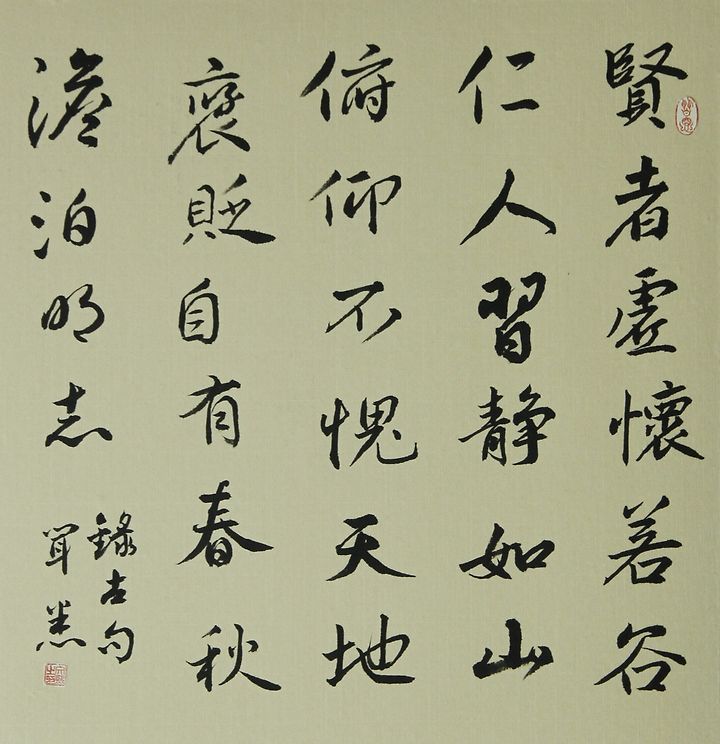 賢者虛懷若谷
仁人習静如山
俯仰不愧天地
褒貶自有春秋
澹泊明志
錄古句